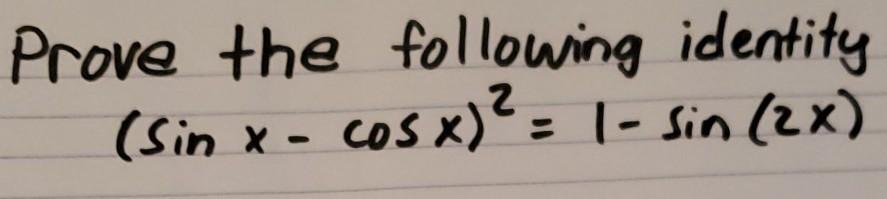 Prove the following identity
(sin x - cos x)² = 1 - sin (2x)